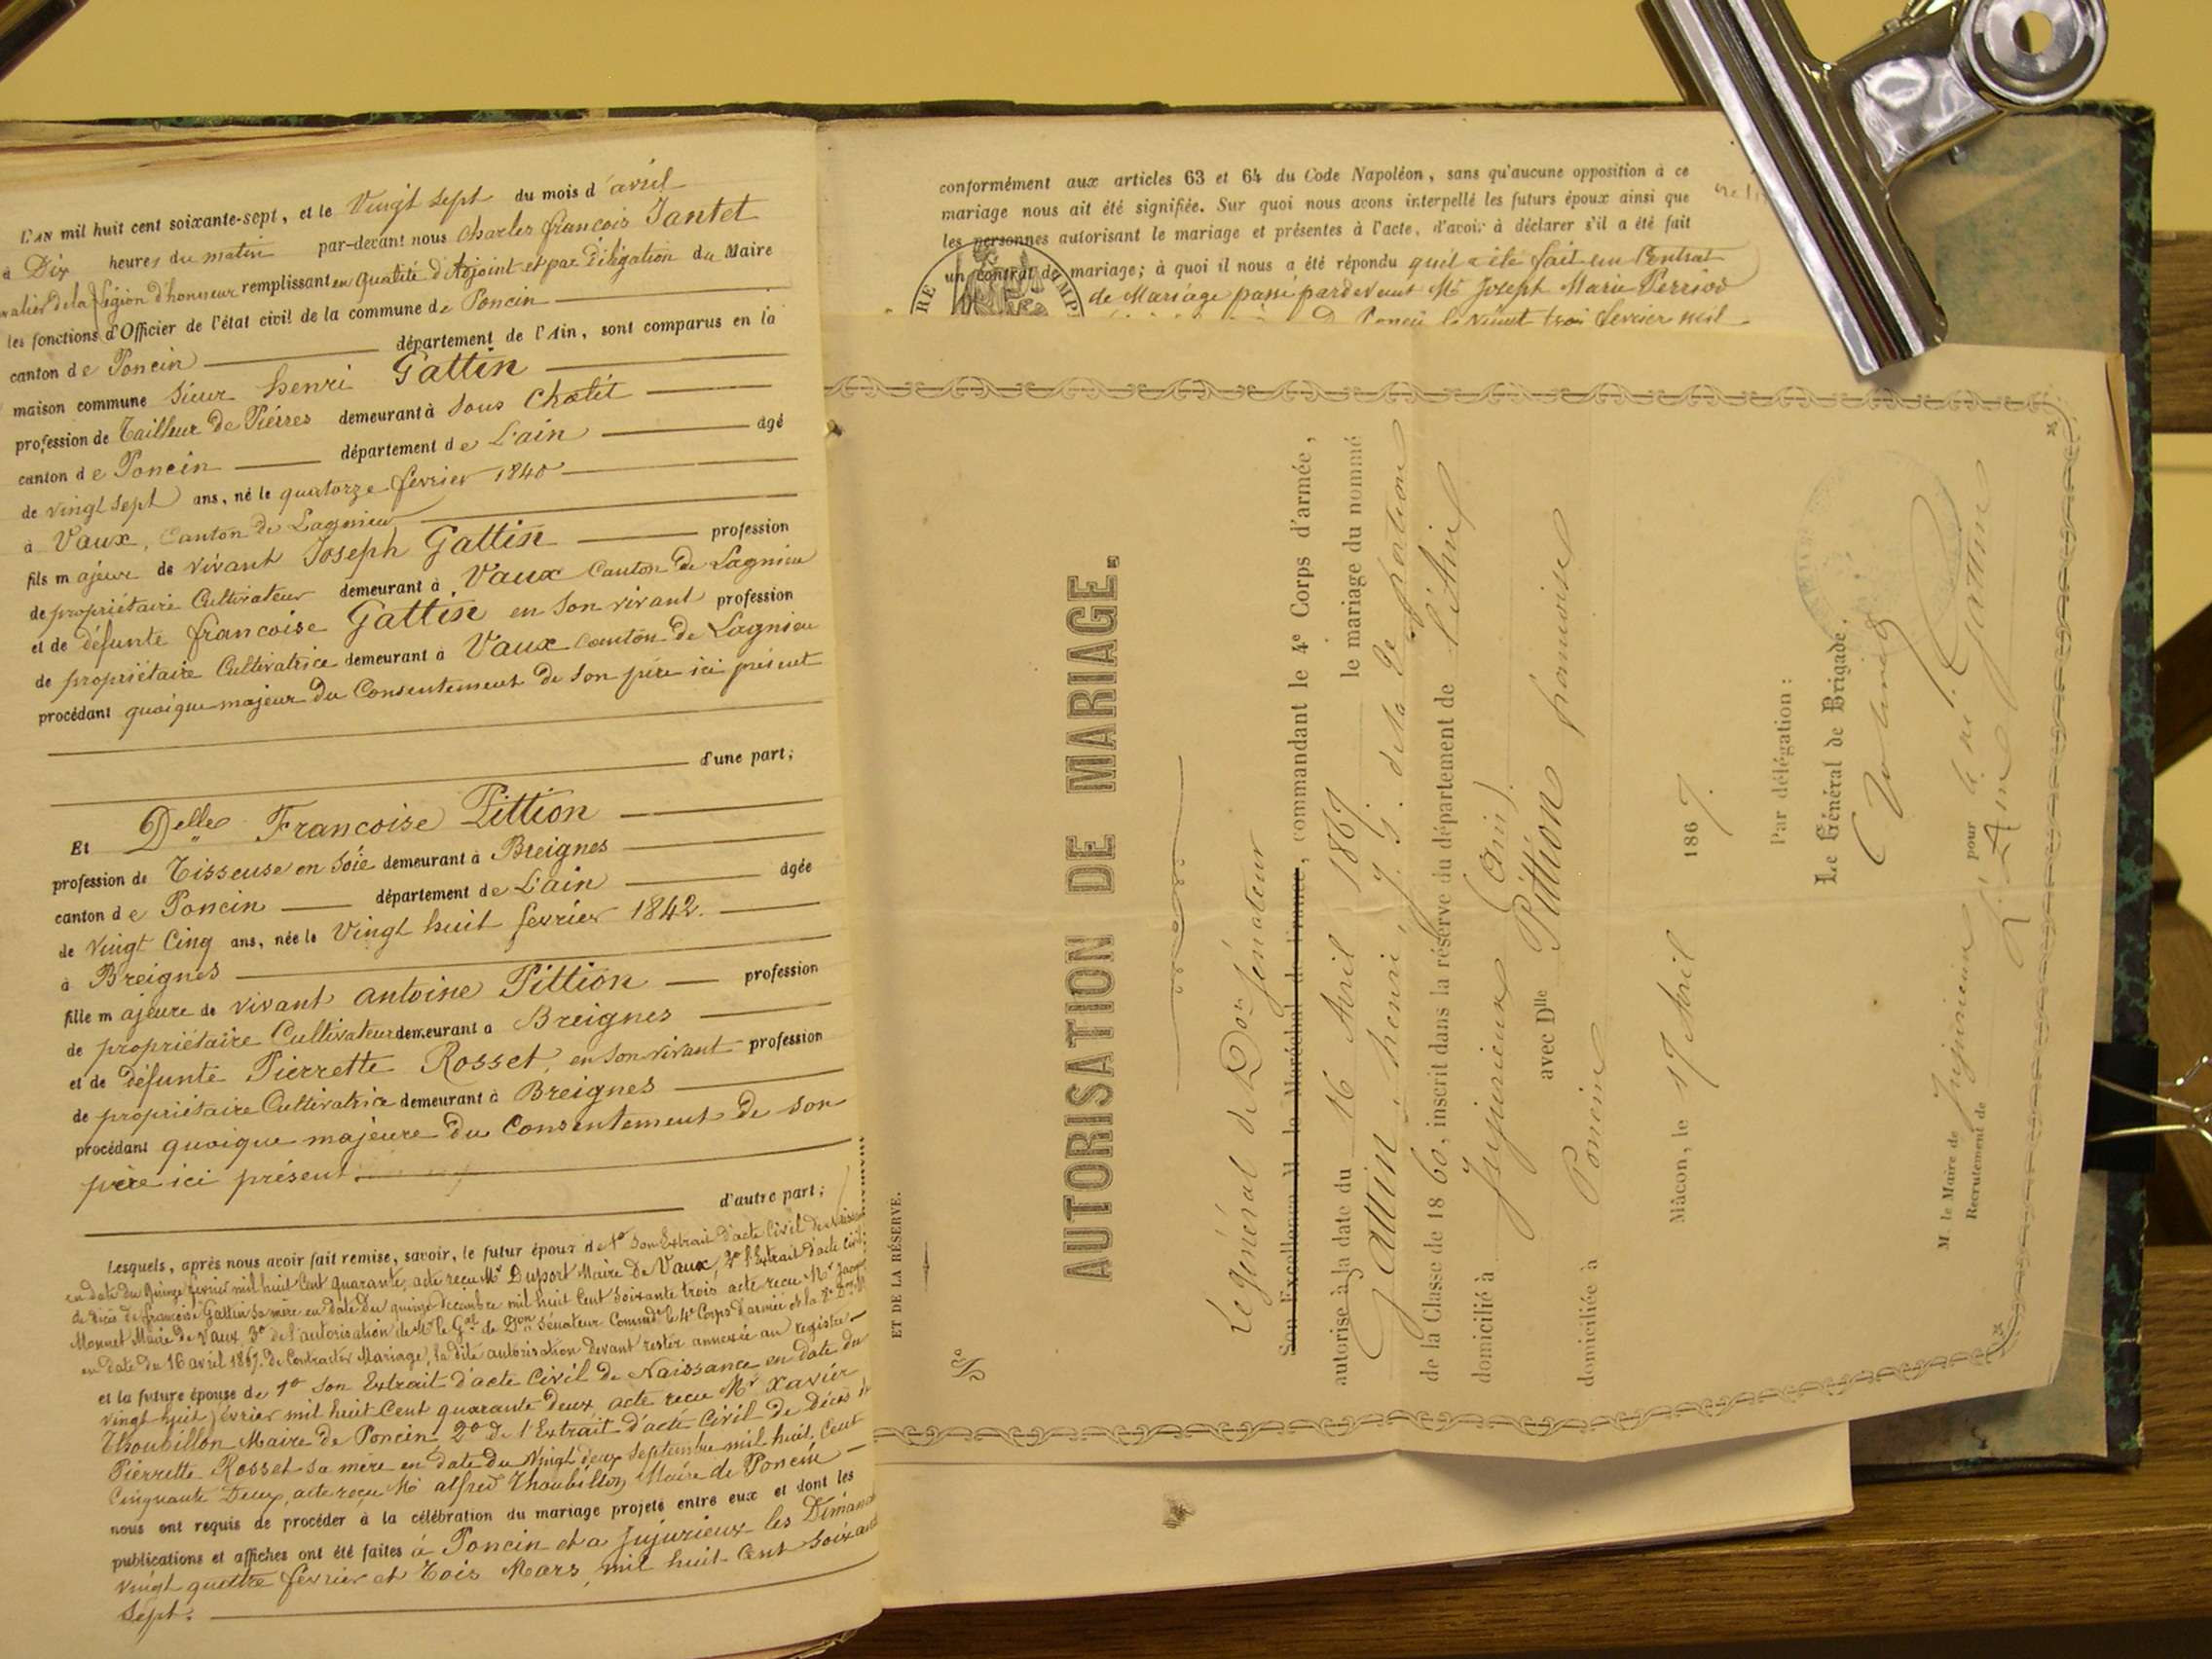 L'AN mil huit cent soixante-sept, et le Vingt sept du mois d'avril
à Dix heures du matin par-devant nous Charles françois Jantet
valier de la Légion d'honneur remplissant en qualité d'Adjoint et par délégation du Maire
les fonctions d'Officier de l'état civil de la commune de Poncin
canton de Poncin département de l'Ain, sont comparus en la
maison commune Sieur henri Gattin
profession de Tailleur de Pierres demeurant à Sous Chatit
canton de Poncin département de L'ain agé
de vingt sept ans, né le quatorze février 1840
à Vaux, Canton de Lagnieu
fils majeur de vivant Joseph Gattin profession
de propriétaire Cultivateur demeurant à Vaux Canton de Lagnieu
et de défunte francoise Gattin en son vivant profession
de propriétaire Cultivatrice demeurant à Vaux canton de Lagnieu
procédant quoique majeur du Consentement de son père ici présent
d'une part;
Et Delle Francoise Pittion
profession de Tisseuse en Soie demeurant à Breignes
canton de Poncin département de L'ain agée
de Vingt Cinq ans, née le Vingt huit fevrier 1842.
à Breignes
fille majeure de vivant antoine Pittion profession
de propriétaire Cultivateur demeurant à Breignes
et de défunte Pierrette Rosset, en son vivant profession
de propriétaire Cultivatrice demeurant à Breignes
procédant quoique majeure du Consentement de son
père ici présent
d'autre part;
Lesquels, après nous avoir fait remise, savoir, le futur époux de 1º Son Extrait d'acte Civil de
en date du Quinze février mil huit Cent quarante, acte reçu Mr Duport Maire de Vaux, 2º l'Extrait d'acte civil
de décès de francoise Gattin sa mère en date du quinze décembre mil huit Cent Soixante trois acte reçu Mr
Monnet Maire de Vaux 3º de l'autorisation de Mr le Gal de Don Sénateur Commdt le 4e Corps d'armée et la 8e
en date du 16 avril 1867. de Contracter Mariage, la dite autorisation devant rester annexée au registre
et la future épouse de 1º Son Extrait d'acte Civil de Naissance en date du
vingt huit février mil huit Cent quarante deux acte reçu Mr Xavier
Thoubillon Maire de Poncin 2º De l'Extrait d'acte Civil de Décès de
Pierrette Rosset sa mère en date du Vingt deux Septembre mil huit Cent
Cinquante Deux, acte reçu Mr alfred Thoubillon Maire de Poncin
nous ont requis de procéder à la célébration du mariage projeté entre eux et dont les
publications et affiches ont été faites à Poncin et a Jujurieux les Diman
vingt quattre février et Trois Mars mil huit Cent Soixante
Sept.
conformément aux articles 63 et 64 du Code Napoléon, sans qu'aucune opposition à ce
mariage nous ait été signifiée. Sur quoi nous avons interpellé les futurs époux ainsi que
les personnes autorisant le mariage et présentes à l'acte, d'avoir à déclarer s'il a été fait
un contrat de mariage; à quoi il nous a été répondu qu'il a été fait un Contrat
de Mariage passé pardevant Me Joseph Marie Perriod
Poncin le vingt trois fevrier mil
ET DE LA RÉSERVE.
No
AUTORISATION DE MARIAGE.
Le général de Don Sénateur
Son Excellence M. le Maréchal de France, commandant le 4e Corps d'armée,
autorise à la date du 16 Avril 1867 le mariage du nommé
Gattin, henri, J. S. de la 2e portion
de la Classe de 1860, inscrit dans la réserve du département de l'Ain
domicilié à Jujurieux (Ain)
avec Dlle Pittion francoise
domiciliée à Poncin
Mâcon, le 17 Avril 1867.
Par délégation:
Le Général de Brigade,
M. le Maire de Jujurieux pour le né Gattin
Recrutement de L'Ain